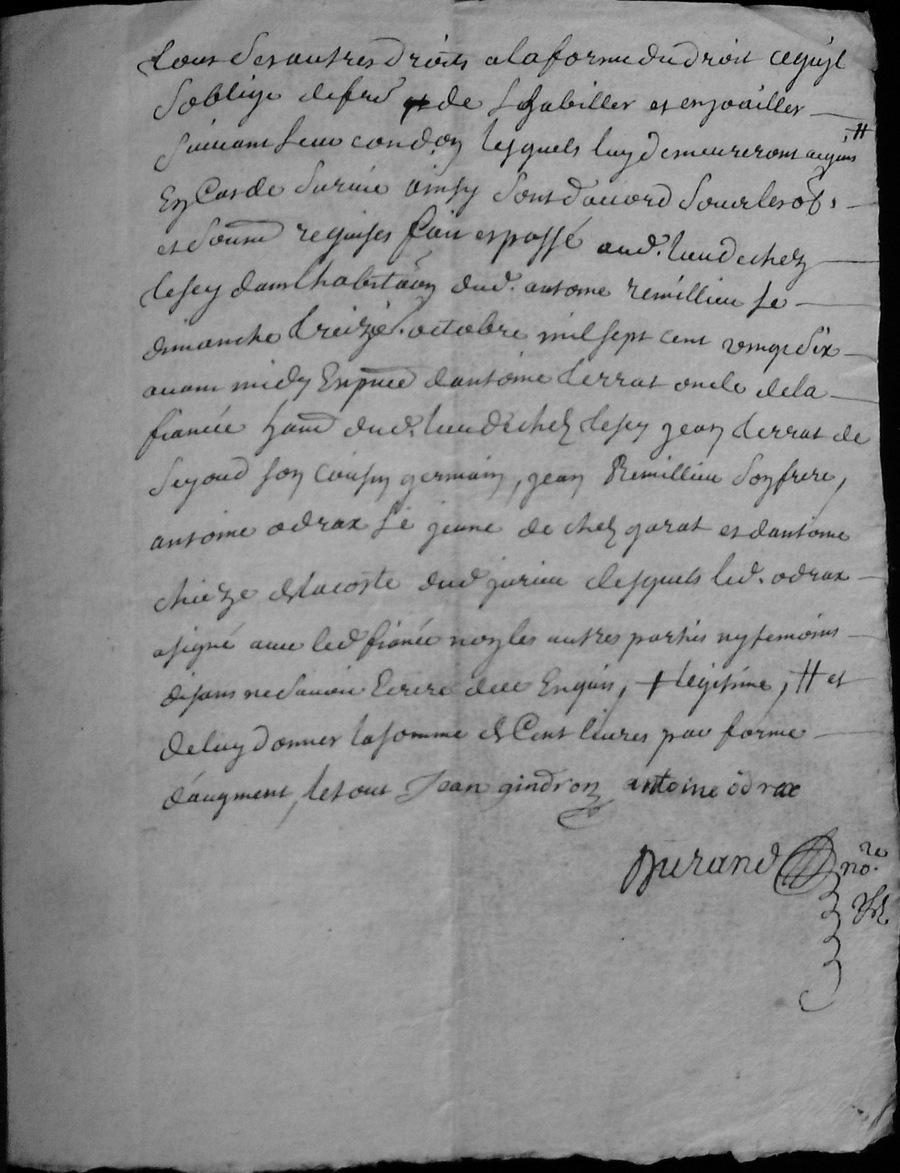 tous ses autres droits a la forme du droit ce quil
soblige de fre et de lhabiller et enjoailler
suivant leur condon lesquels luy demeureront acquis #
En Cas de survie ainsy sont daccord sour les ob.
et soumi requises fait et passé aud. lieu de chez
lesey dans lhabitaon dud. antoine remillieu le
dimanche treize. octobre mil sept cent vingt six
avant midy En pnce dantoine terrat oncle de la
fiancée hant dud. lieu de chez lesey jean terrat de
seyoud son cousin germain, jean Remillieu son frere,
antoine odrax le jeune de chez garat et dantoine
chieze de lacoste dud jurieu desquels led. odrax
a signé avec led fiancé non les autres parties ny temoins
disans ne scavoir Ecrire de ce Enquis, + legitime, # et
de luy donner la somme de Cent livres par forme
daugment, le tout Jean gindron antoine odrax
Durand nore
Rl